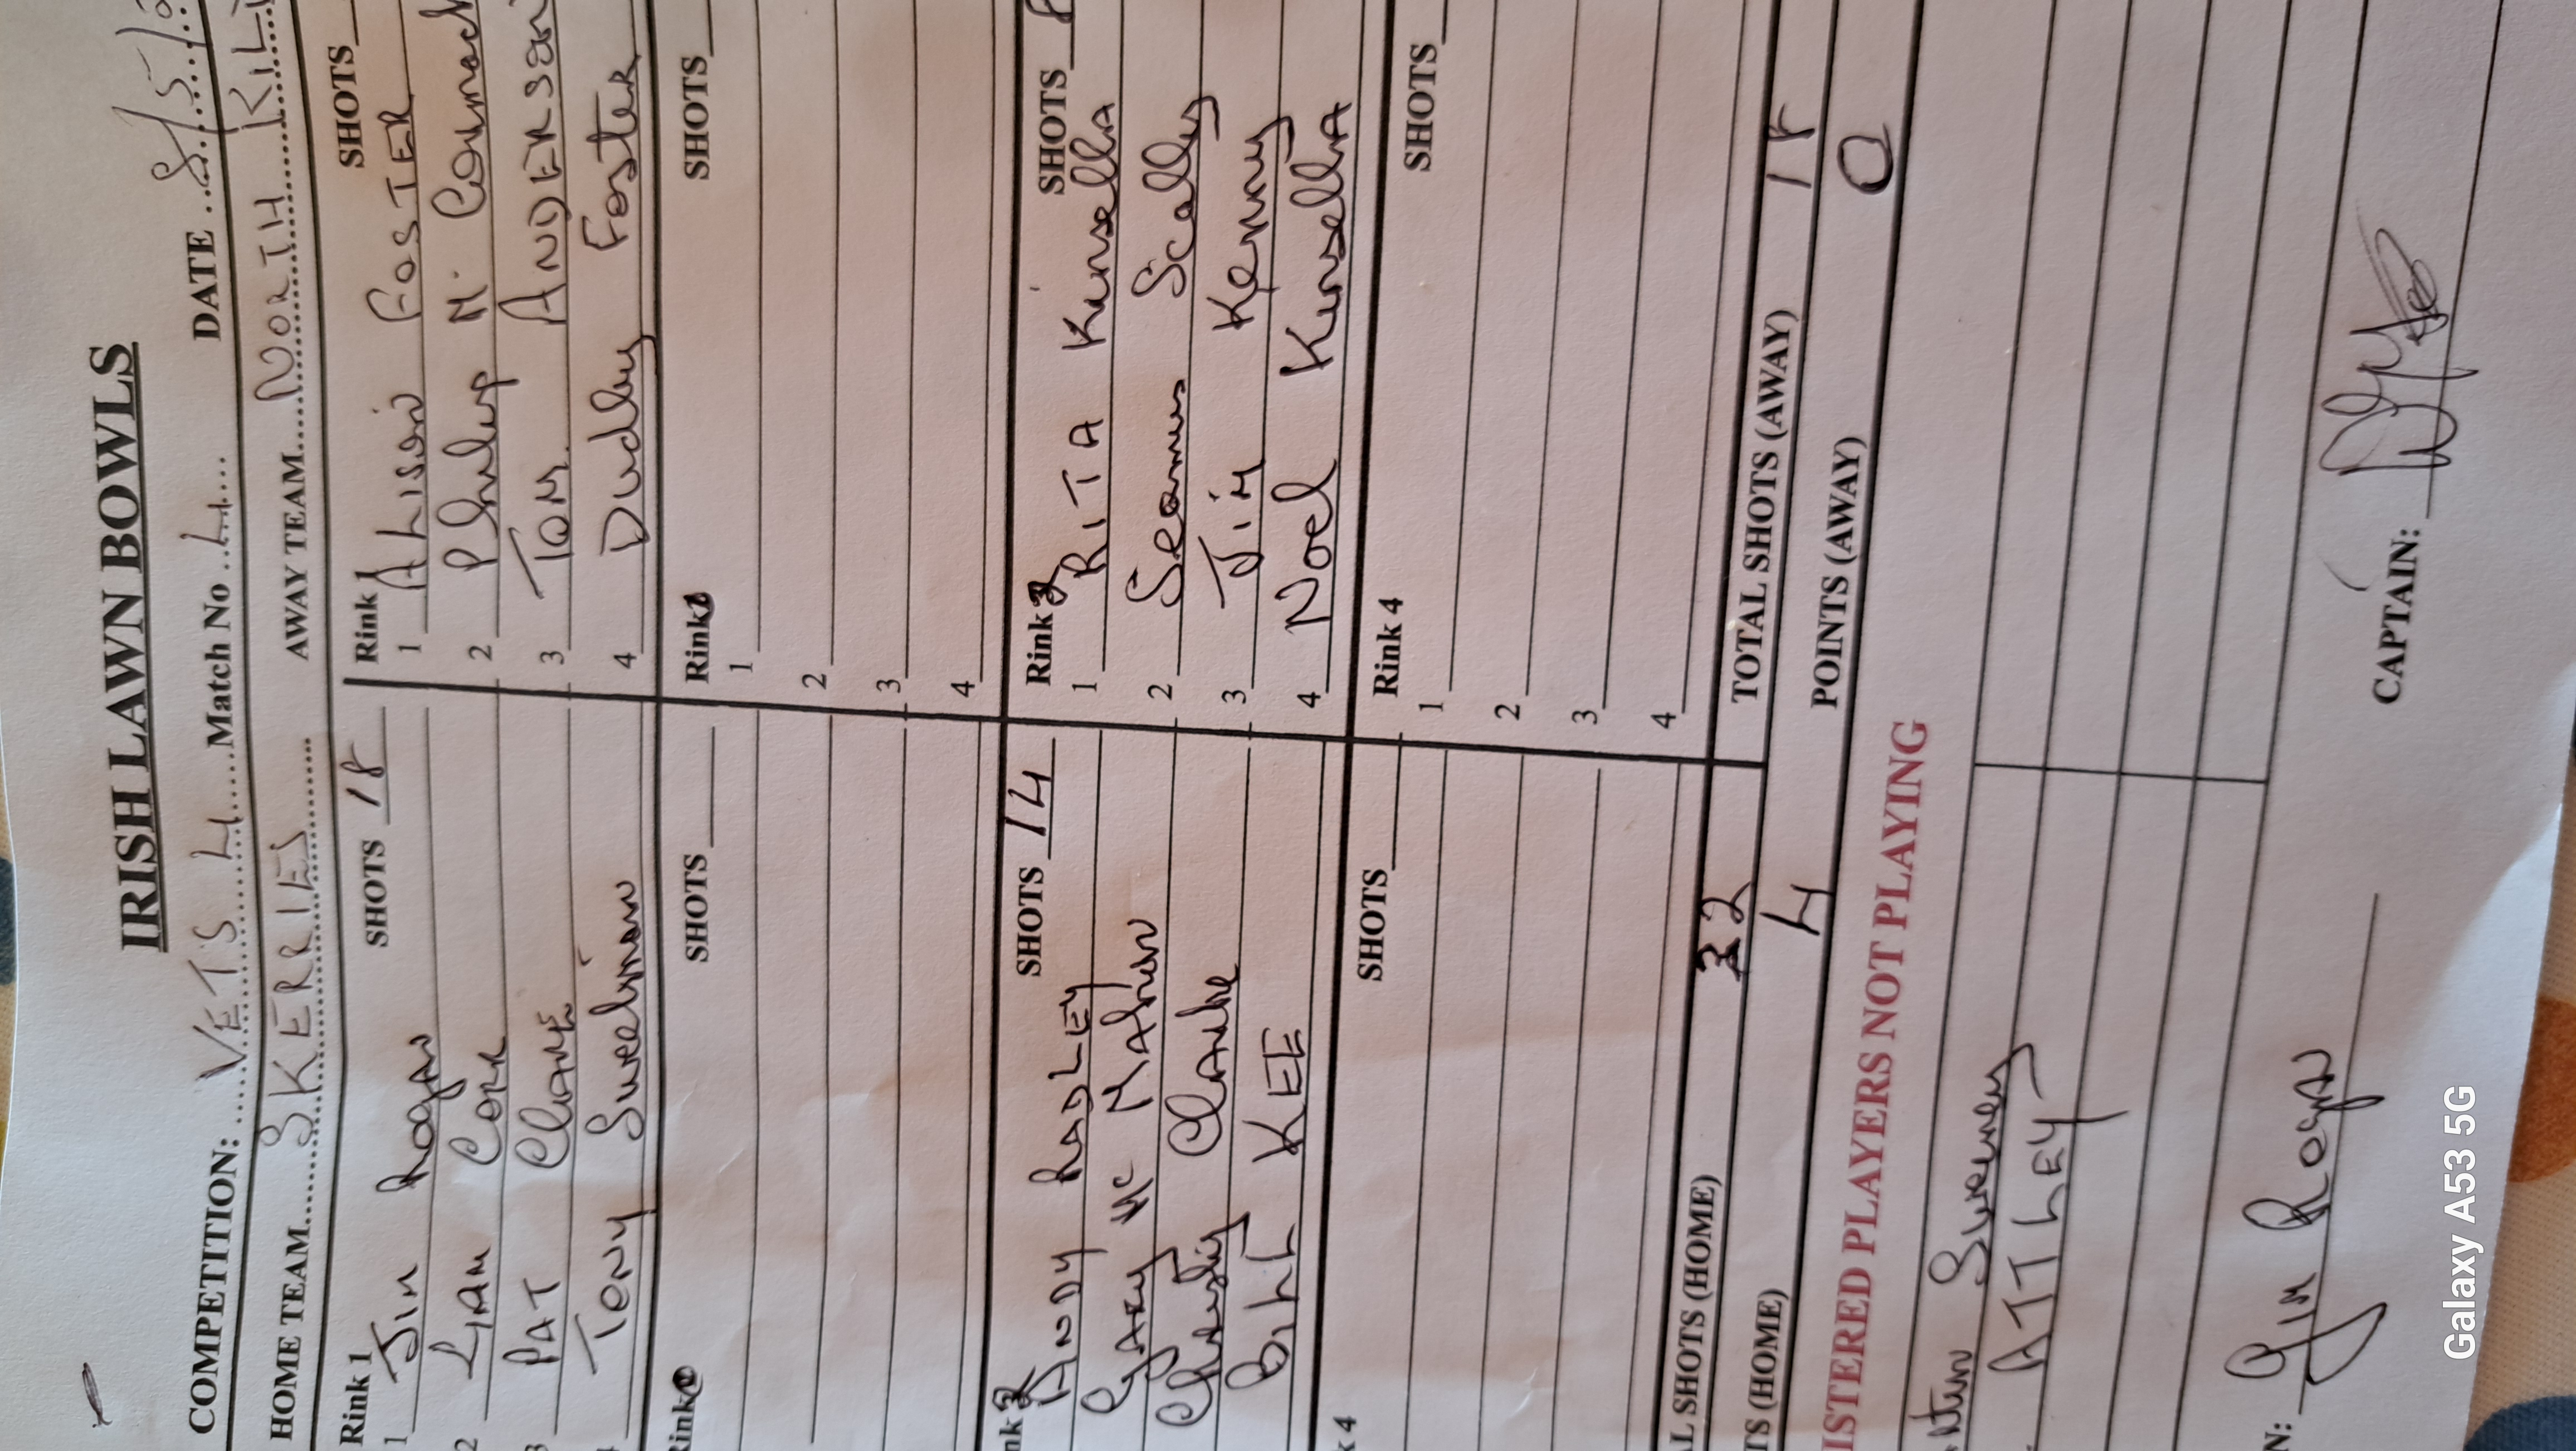 IRISH LAWN BOWLS
COMPETITION: VETS 4 Match No 4 DATE 8/5/
HOME TEAM SKERRIES AWAY TEAM NORTH KIL
Rink 1 SHOTS 18 Rink 1 SHOTS
1 Jim Rogan 1 ALISON FOSTER
2 LIAM CORR 2 Philip Mc Cormack
3 PAT CLARKE 3 TOM ANDERSON
4 TONY Sweetman 4 Dudley Foster
Rink SHOTS Rink SHOTS
1
2
3
4
nk 2 SHOTS 14 Rink 2 SHOTS 8
ANDY RADLEY 1 RITA Kinsella
GARY Mc MAHON 2 Seamus Scally
Christy Clarke 3 Jim Kenny
BILL KEE 4 Noel Kinsella
k 4 SHOTS Rink 4 SHOTS
1
2
3
4
AL SHOTS (HOME) 32 TOTAL SHOTS (AWAY) 18
TS (HOME) 4 POINTS (AWAY) 0
ISTERED PLAYERS NOT PLAYING
Sweeney
ATTLEY
N: Jim Rogan CAPTAIN:
Galaxy A53 5G